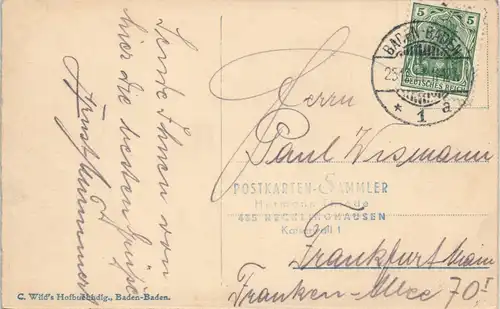 Sende Ihnen von
hier die besten Grüße
Ernst
5 5
BADEN-BADEN
25
DEUTSCHES REICH
* 1 a
Herrn
Paul Wismann
POSTKARTEN-SAMMLER
Hermann
435 RECKLINGHAUSEN
1
Frankfurt Main
Franken-Allee 70 I
C. Wild's Hofbuchhdlg., Baden-Baden.